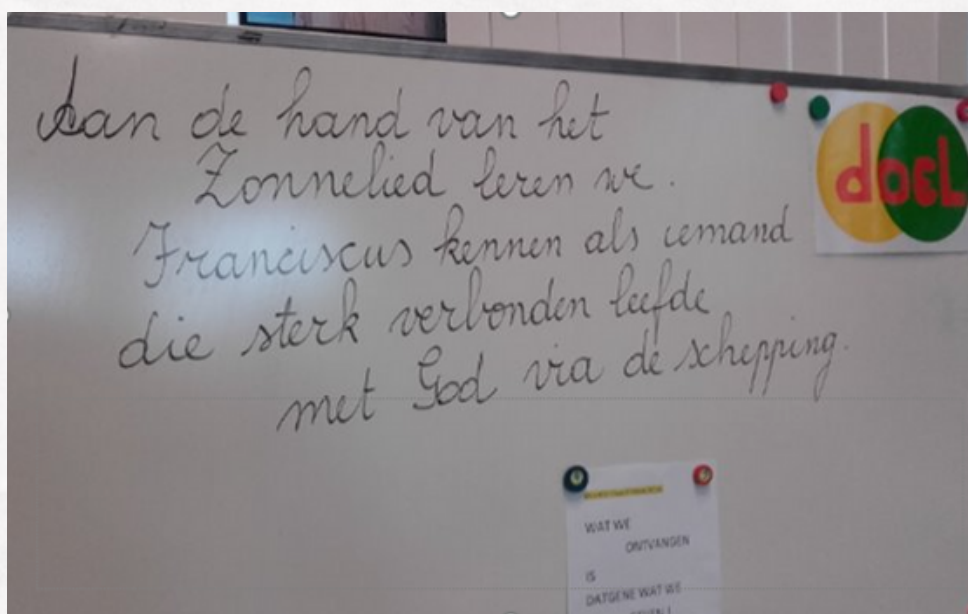 Aan de hand van het
Zonnelied leren we.
Franciscus kennen als iemand
die sterk verbonden leefde
met God via de schepping.
doEL
WAT WE
ONTVANGEN
IS
DATGENE WAT WE